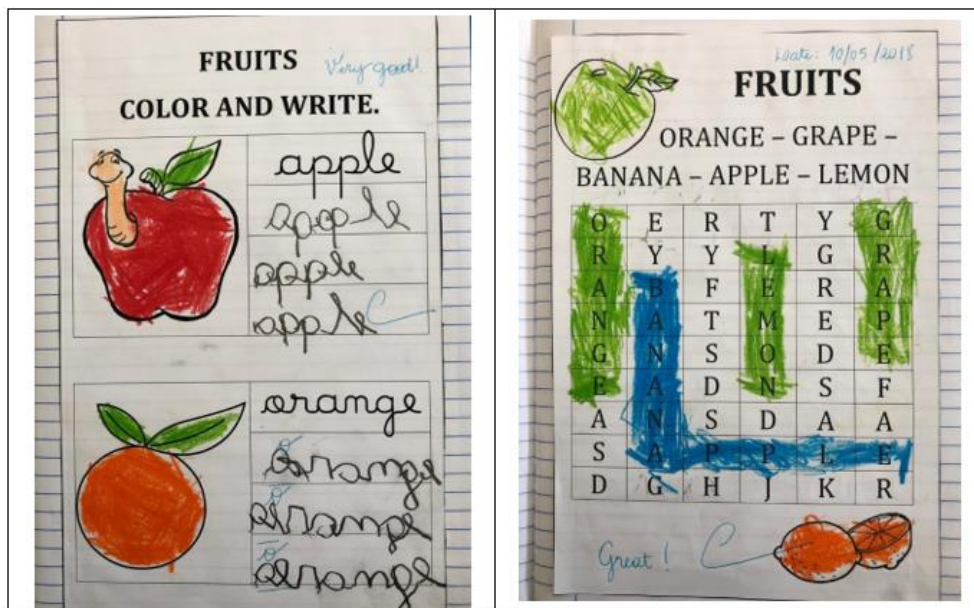 FRUITS
Very good!
COLOR AND WRITE.
apple
apple
apple
apple
orange
orange
orange
orange
Date: 10/05/2018
FRUITS
ORANGE – GRAPE –
BANANA – APPLE – LEMON
O E R T Y G
R Y Y L G R
A B F E R A
N A T M E P
G N S O D E
E A D N S F
A N S D A A
S A P P L E
D G H J K R
Great! C